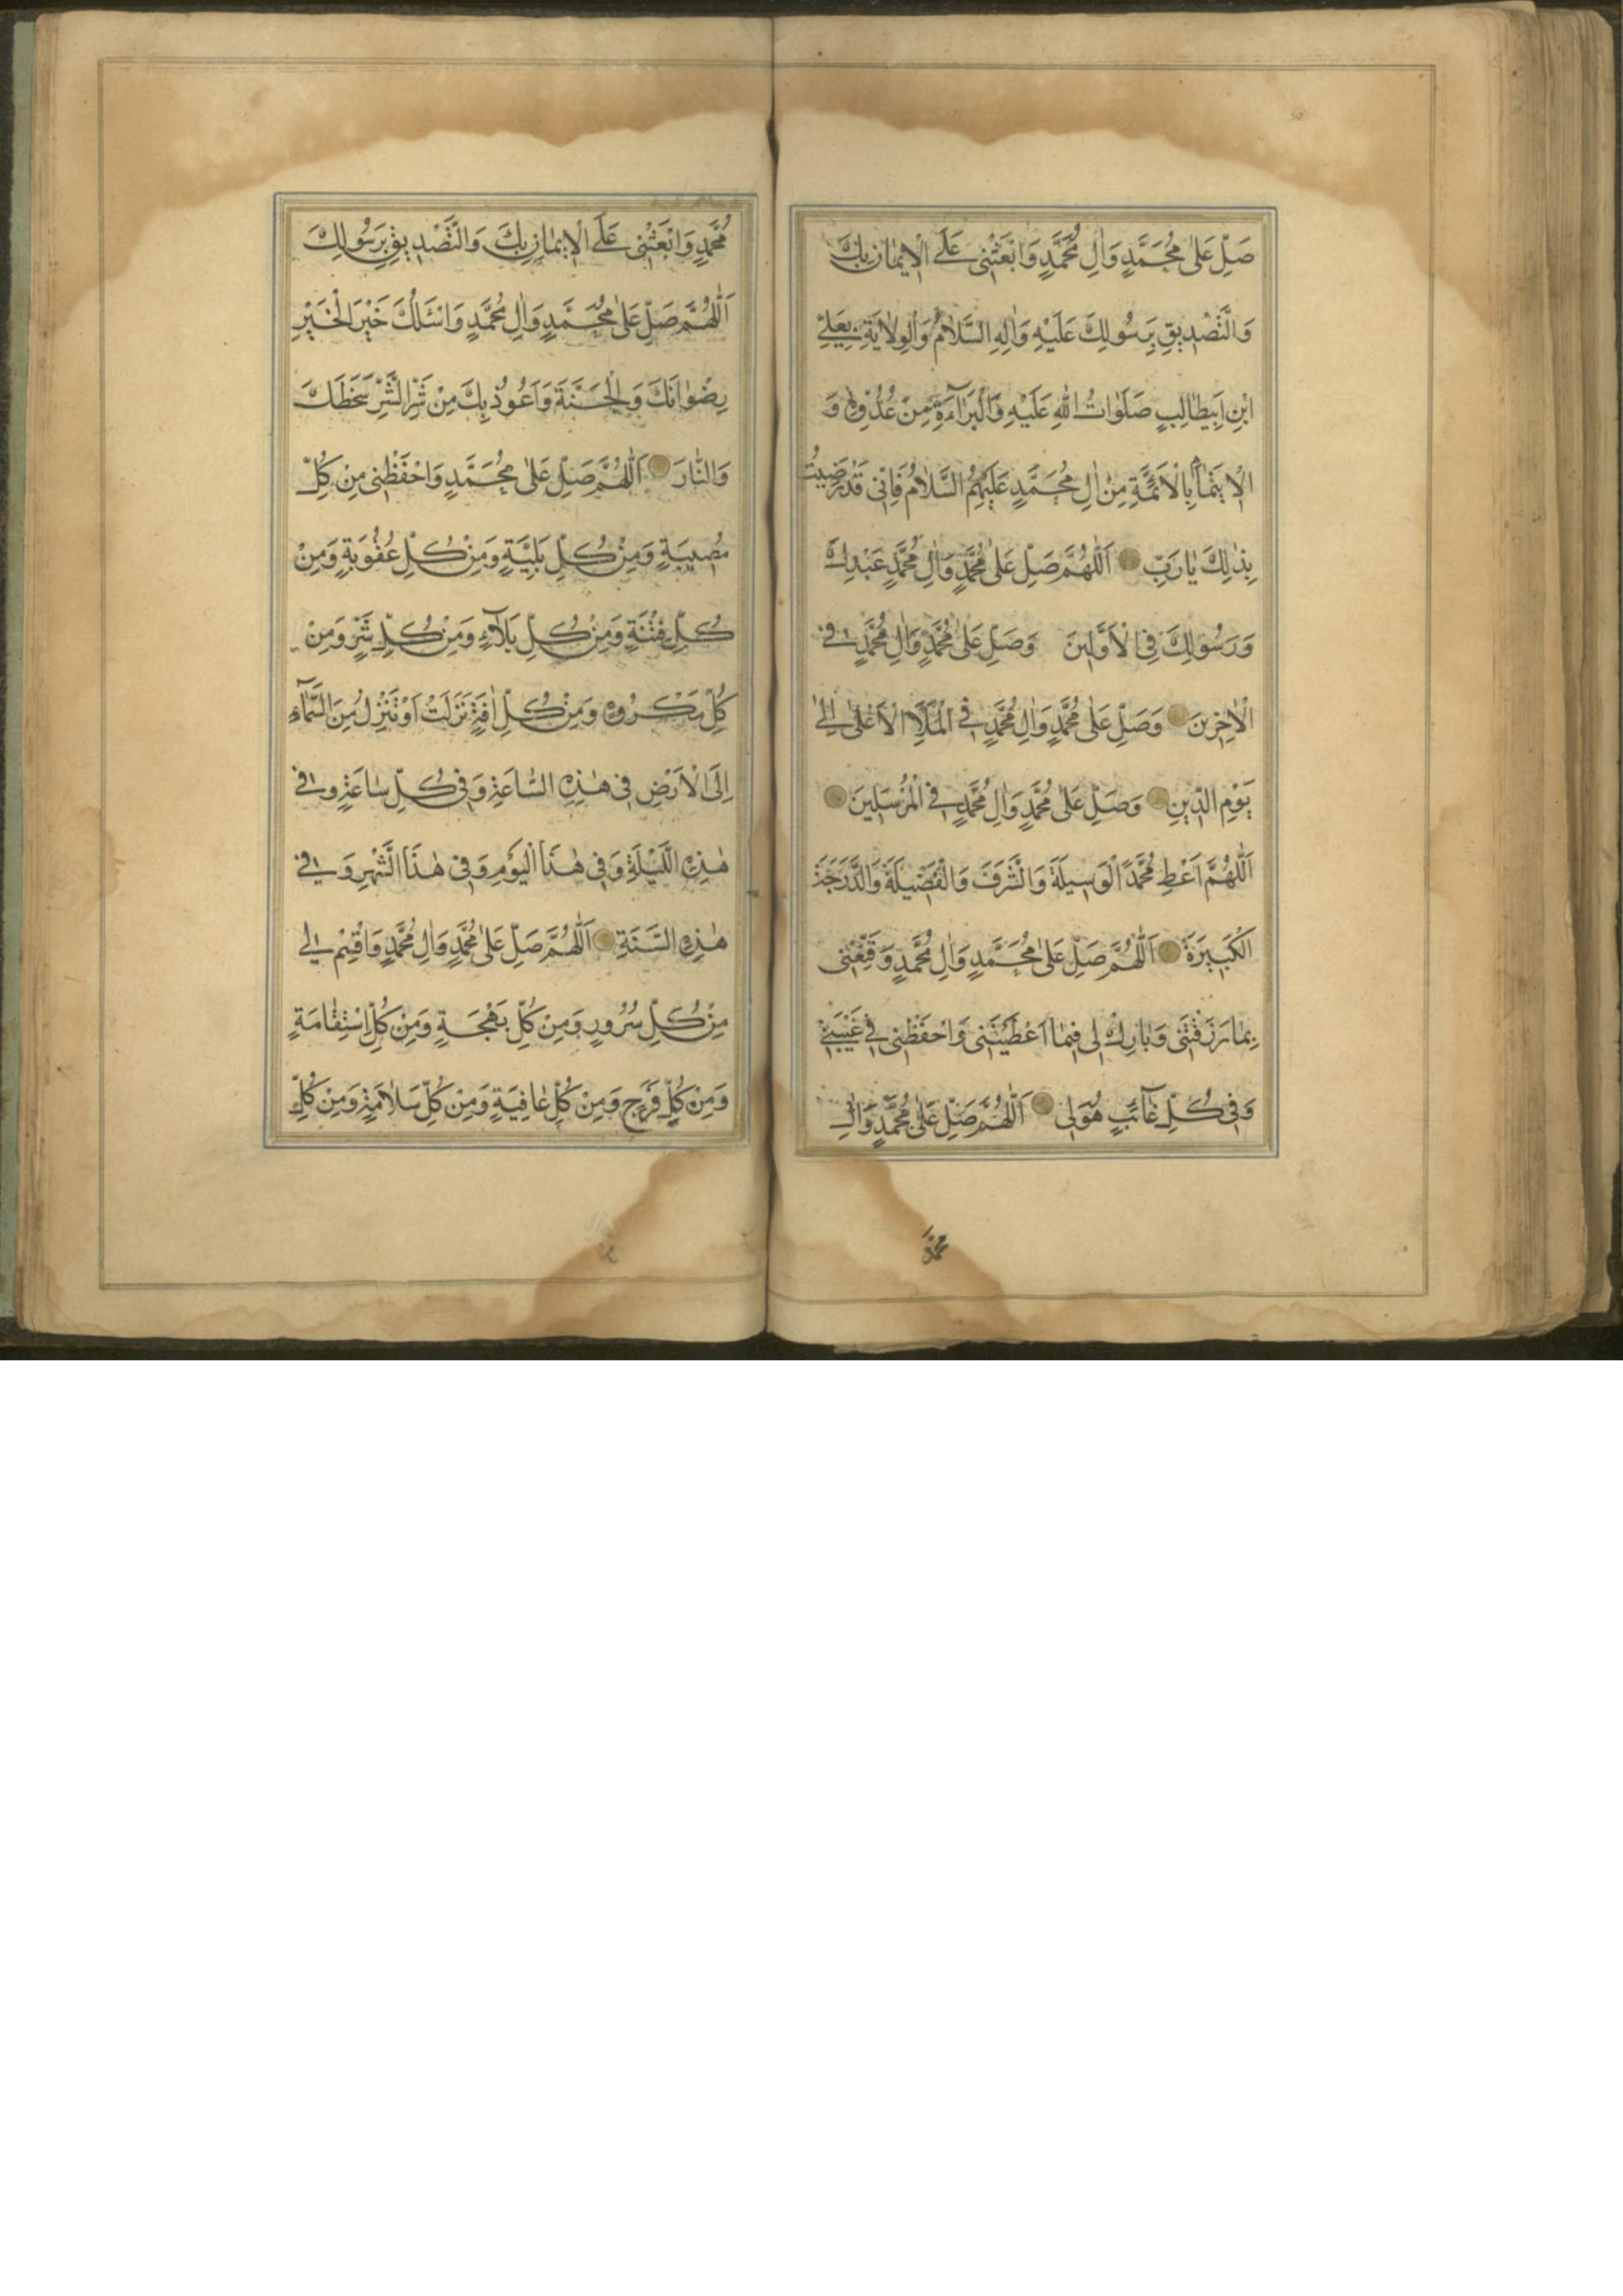 صَلِّ عَلىٰ مُحَمَّدٍ وَاٰلِ مُحَمَّدٍ وَابْعَثْنِى عَلَى الْاِيمٰانِ بِكَ
وَالتَّصْدِيقِ بِرَسُولِكَ عَلَيْهِ وَاٰلِهِ السَّلَامُ وَالْوِلَايَةِ بِعَلِىِّ
ابْنِ اَبِيطٰالِبٍ صَلَوٰاتُ اللّٰهِ عَلَيْهِ وَالْبَرَاۤءَةِ مِنْ عَدُوِّهِ وَ
الْاِيتْمٰامِ بِالْاَئِمَّةِ مِنْ اٰلِ مُحَمَّدٍ عَلَيْهِمُ السَّلَامُ فَاِنّى قَدْ رَضِيتُ
بِذٰلِكَ يٰا رَبِّ اَللّٰهُمَّ صَلِّ عَلىٰ مُحَمَّدٍ وَاٰلِ مُحَمَّدٍ عَبْدِكَ
وَرَسُولِكَ فِى الْاَوَّلِينَ وَصَلِّ عَلىٰ مُحَمَّدٍ وَاٰلِ مُحَمَّدٍ فِى
الْاٰخِرِينَ وَصَلِّ عَلىٰ مُحَمَّدٍ وَاٰلِ مُحَمَّدٍ فِى الْمَلَاِ الْاَعْلىٰ اِلىٰ
يَوْمِ الدِّينِ وَصَلِّ عَلىٰ مُحَمَّدٍ وَاٰلِ مُحَمَّدٍ فِى الْمُرْسَلِينَ
اَللّٰهُمَّ اَعْطِ مُحَمَّدًا الْوَسِيلَةَ وَالشَّرَفَ وَالْفَضِيلَةَ وَالدَّرَجَةَ
الْكَبِيرَةَ اَللّٰهُمَّ صَلِّ عَلىٰ مُحَمَّدٍ وَاٰلِ مُحَمَّدٍ وَقَنِّعْنِى
بِمٰا رَزَقْتَنِى وَبٰارِكْ لِى فِيمٰا اَعْطَيْتَنِى وَاحْفَظْنِى فِى غَيْبَتِى
وَفِى كُلِّ غٰاۤئِبٍ هُوَ لِى اَللّٰهُمَّ صَلِّ عَلىٰ مُحَمَّدٍ وَاٰلِ
مُحَمَّدٍ
مُحَمَّدٍ وَابْعَثْنِى عَلَى الْاِيمٰانِ بِكَ وَالتَّصْدِيقِ بِرَسُولِكَ
اَللّٰهُمَّ صَلِّ عَلىٰ مُحَمَّدٍ وَاٰلِ مُحَمَّدٍ وَاَسْئَلُكَ خَيْرَ الْخَيْرِ
رِضْوٰانَكَ وَالْجَنَّةَ وَاَعُوذُ بِكَ مِنْ شَرِّ الشَّرِّ سَخَطِكَ
وَالنّٰارَ اَللّٰهُمَّ صَلِّ عَلىٰ مُحَمَّدٍ وَاحْفَظْنِى مِنْ كُلِّ
مُصِيبَةٍ وَمِنْ كُلِّ بَلِيَّةٍ وَمِنْ كُلِّ عُقُوبَةٍ وَمِنْ
كُلِّ فِتْنَةٍ وَمِنْ كُلِّ بَلَاۤءٍ وَمِنْ كُلِّ شَرٍّ وَمِنْ
كُلِّ مَكْرُوهٍ وَمِنْ كُلِّ اٰفَةٍ نَزَلَتْ اَوْ تَنْزِلُ مِنَ السَّمٰاۤءِ
اِلَى الْاَرْضِ فِى هٰذِهِ السّٰاعَةِ وَفِى كُلِّ سٰاعَةٍ وَفِى
هٰذِهِ اللَّيْلَةِ وَفِى هٰذَا الْيَوْمِ وَفِى هٰذَا الشَّهْرِ وَفِى
هٰذِهِ السَّنَةِ اَللّٰهُمَّ صَلِّ عَلىٰ مُحَمَّدٍ وَاٰلِ مُحَمَّدٍ وَاقْسِمْ لِى
مِنْ كُلِّ سُرُورٍ وَمِنْ كُلِّ بَهْجَةٍ وَمِنْ كُلِّ اسْتِقٰامَةٍ
وَمِنْ كُلِّ فَرَجٍ وَمِنْ كُلِّ عٰافِيَةٍ وَمِنْ كُلِّ سَلَامَةٍ وَمِنْ كُلِّ